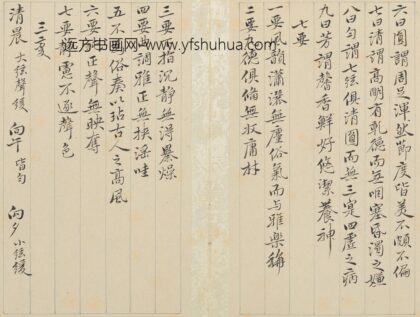 六曰圓謂周足渾然節度皆美不頗不偏
七曰清謂高明有乾德而無咽塞昏濁之嫌
八曰匀謂七弦俱清圓而無三寔四虛之病
九曰芳謂馨香鮮好悠潔養神
七要
一要風韻瀟灑無塵俗氣而与雅樂稱
二要德俱備無收庸材
三要指沉静無得暴燥
四要曲調雅正無挾淫哇
五不俗奏以玷古人之高風
六要正聲無映奪
七要聽憲不逐聲色
三度
清晨 大弦聲緩 向午 皆匀 向夕 小弦緩
远方书画网-www.yfshuhua.com